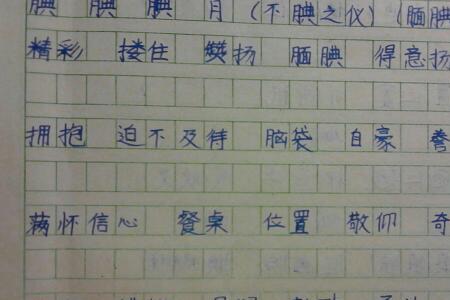 腆 腆 腆 月 (不腆之仪) (腼腆
精彩 搂住 赞扬 腼腆 得意扬
拥抱 迫不及待 脑袋 自豪 誊
满怀信心 餐桌 位置 敬仰 奇